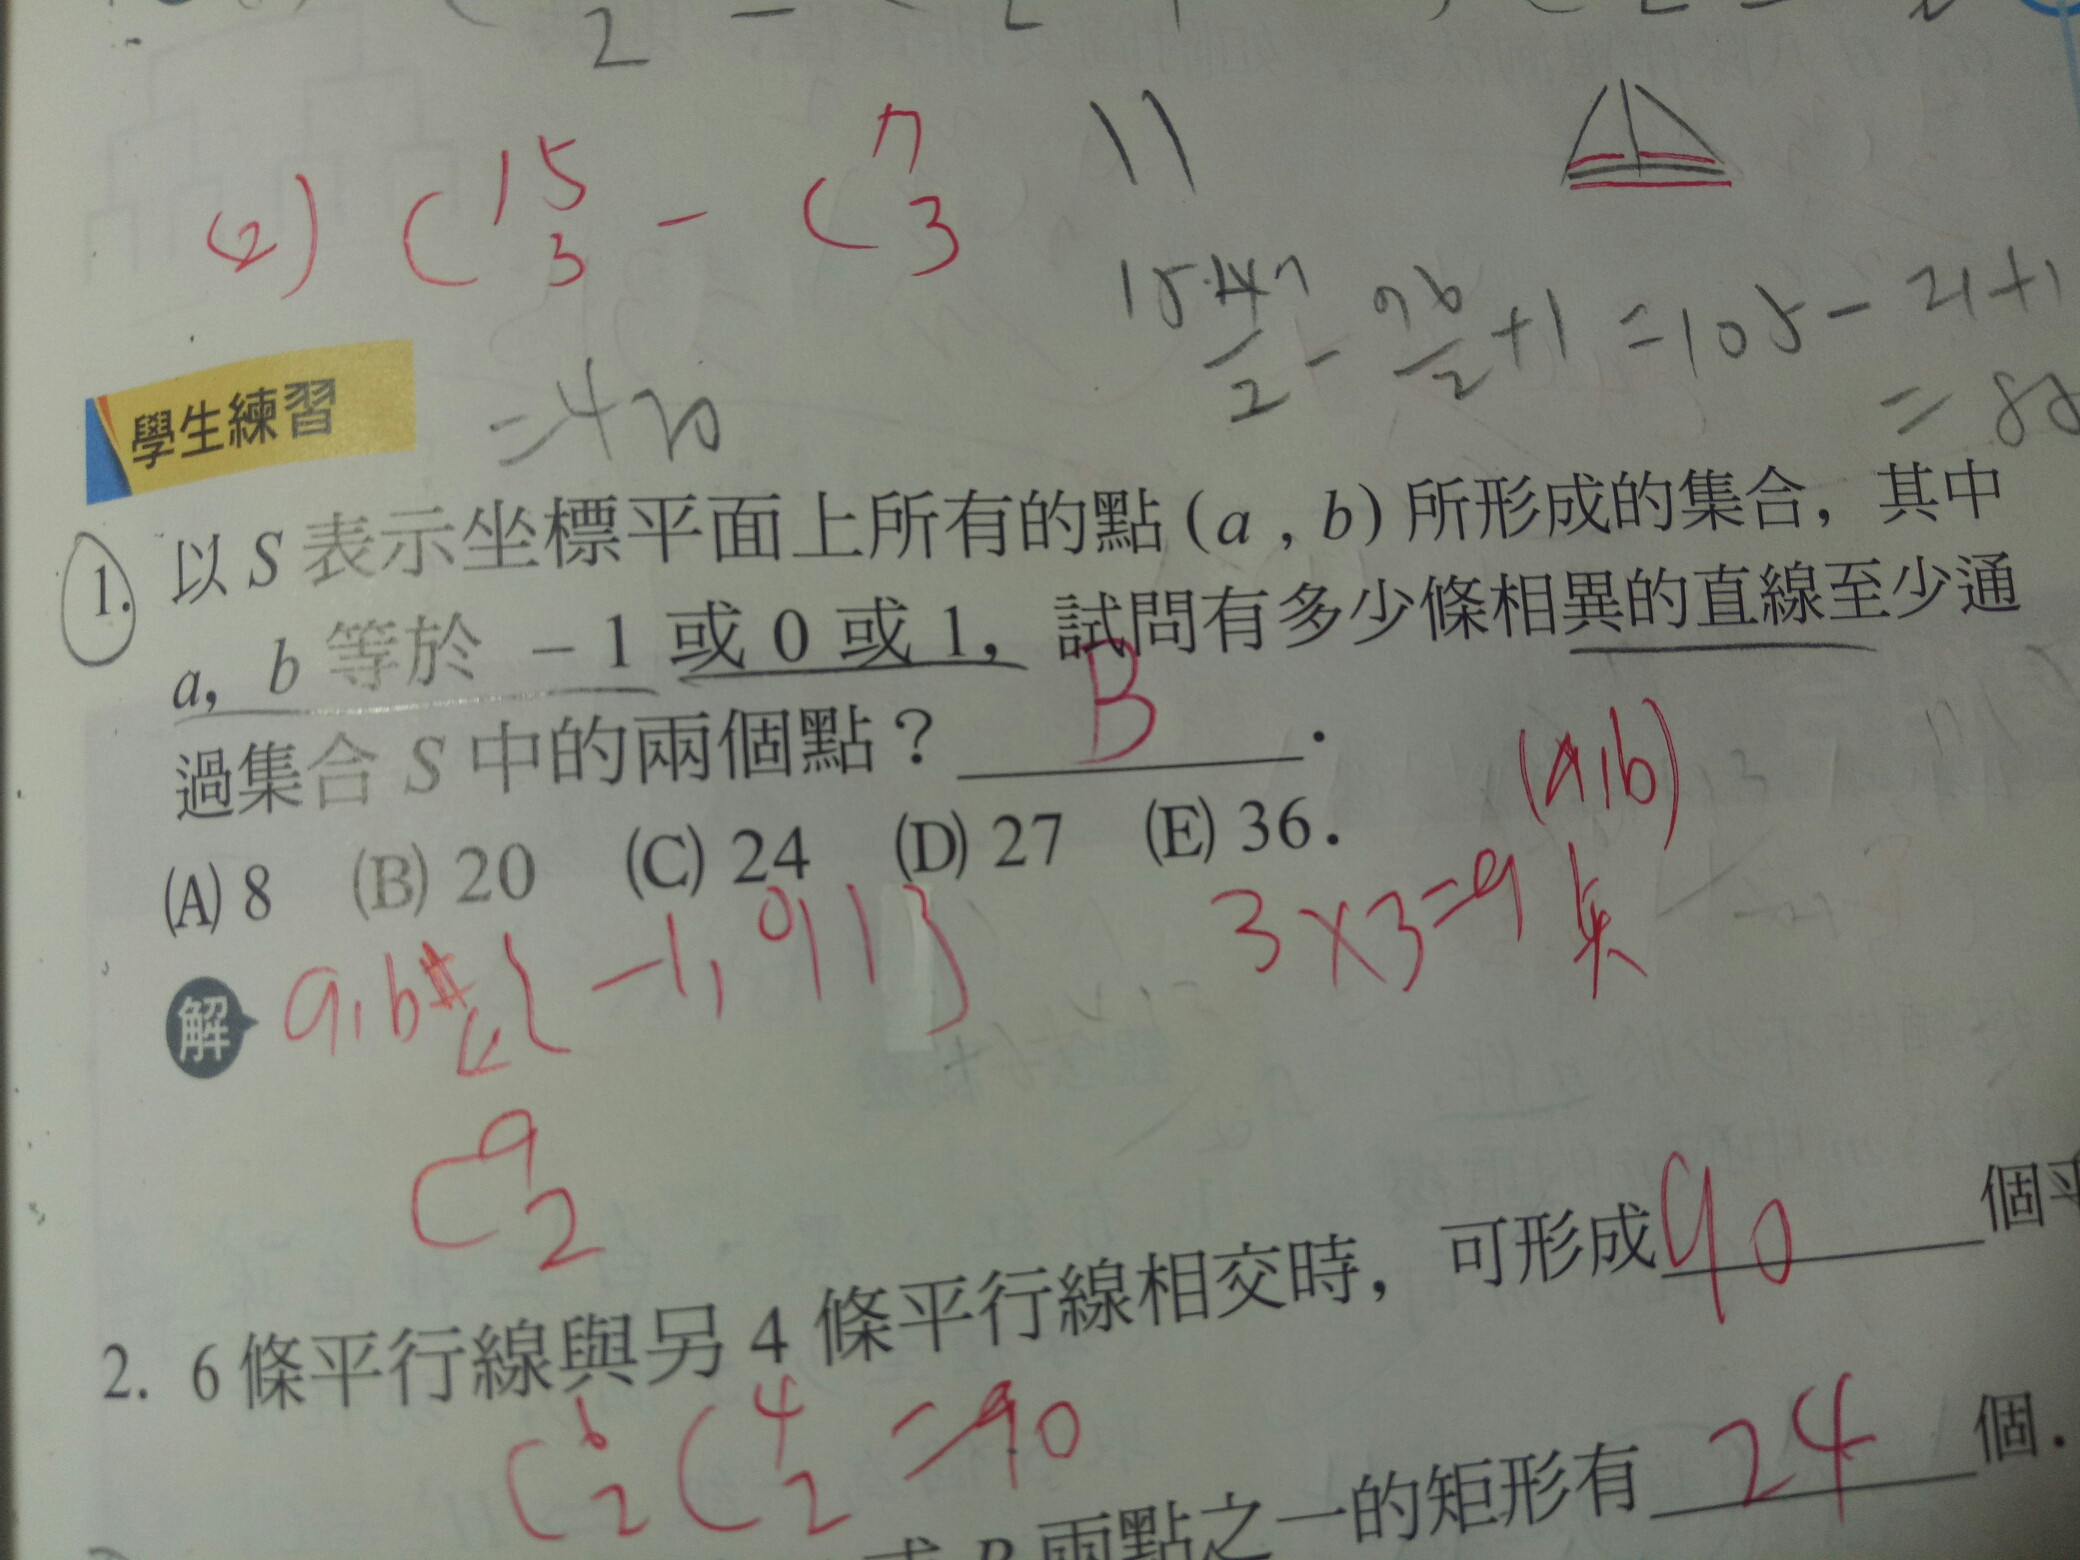 (2) C 15 3 - C 7 3
11
=420
15·14 7 / 2 - 7 6 / 2 +1 =105-21+1
學生練習
1. 以 S 表示坐標平面上所有的點 (a , b) 所形成的集合，其中
a，b 等於 -1 或 0 或 1，試問有多少條相異的直線至少通
過集合 S 中的兩個點？ B .
(a,b)
(A) 8 (B) 20 (C) 24 (D) 27 (E) 36.
解 a,b ∈ { -1, 0, 1 } 3×3=9 點
C 9 2
2. 6 條平行線與另 4 條平行線相交時，可形成 90 個平
C 6 2 C 4 2 =90
或 B 兩點之一的矩形有 24 個.